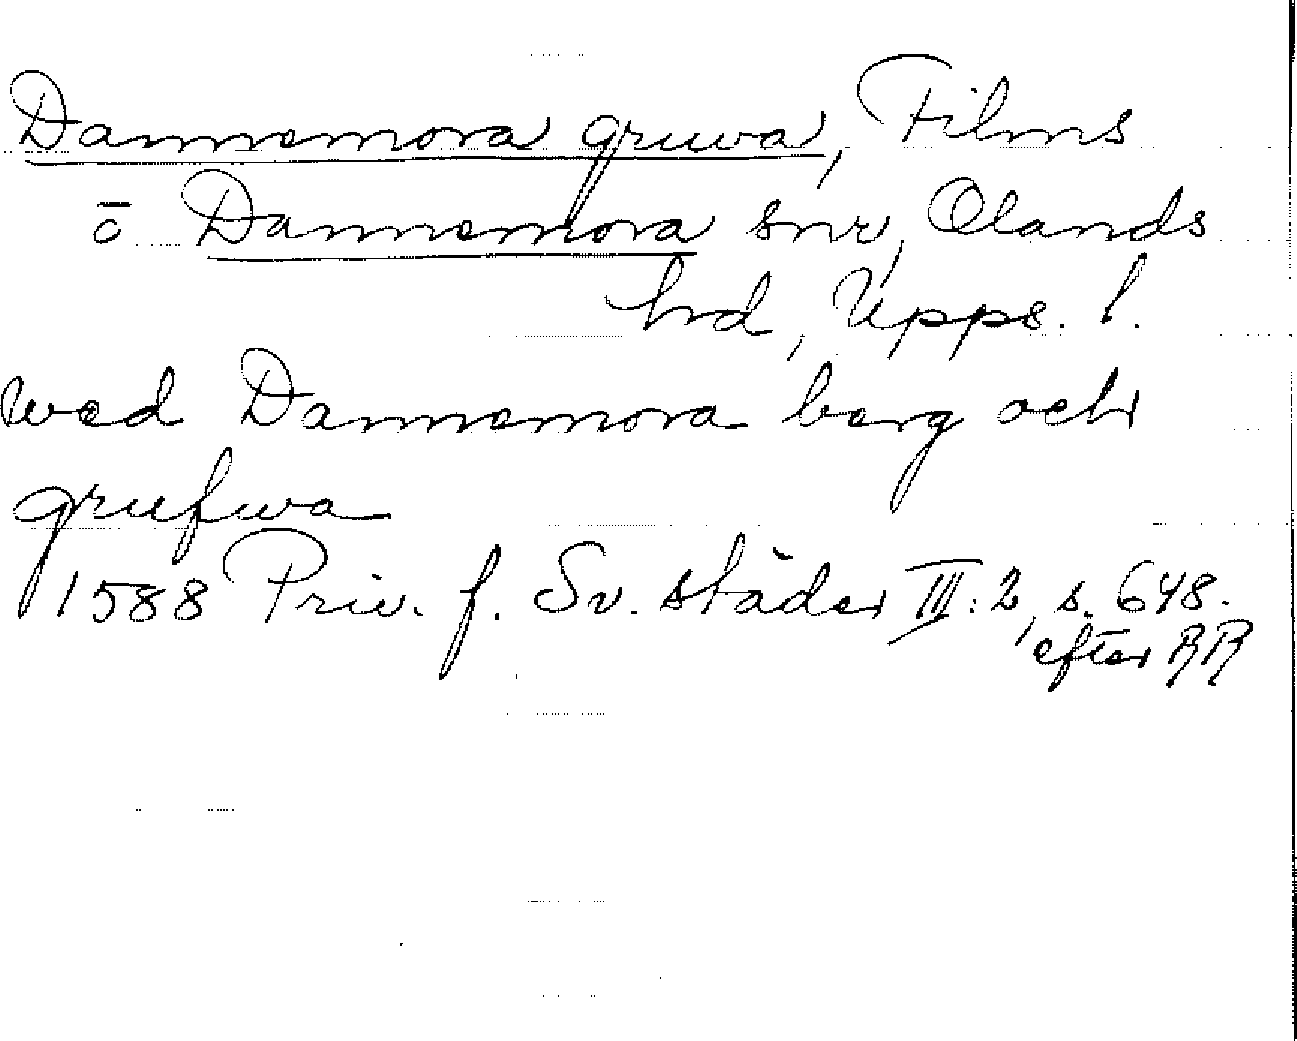 Dannemora gruva, Films
o Dannemora snr, Olands
hd, Upps. l.
wed Dannemora berg och
grufwa
1588 Priv. f. Sv. städer III:2, s. 648.
efter RR